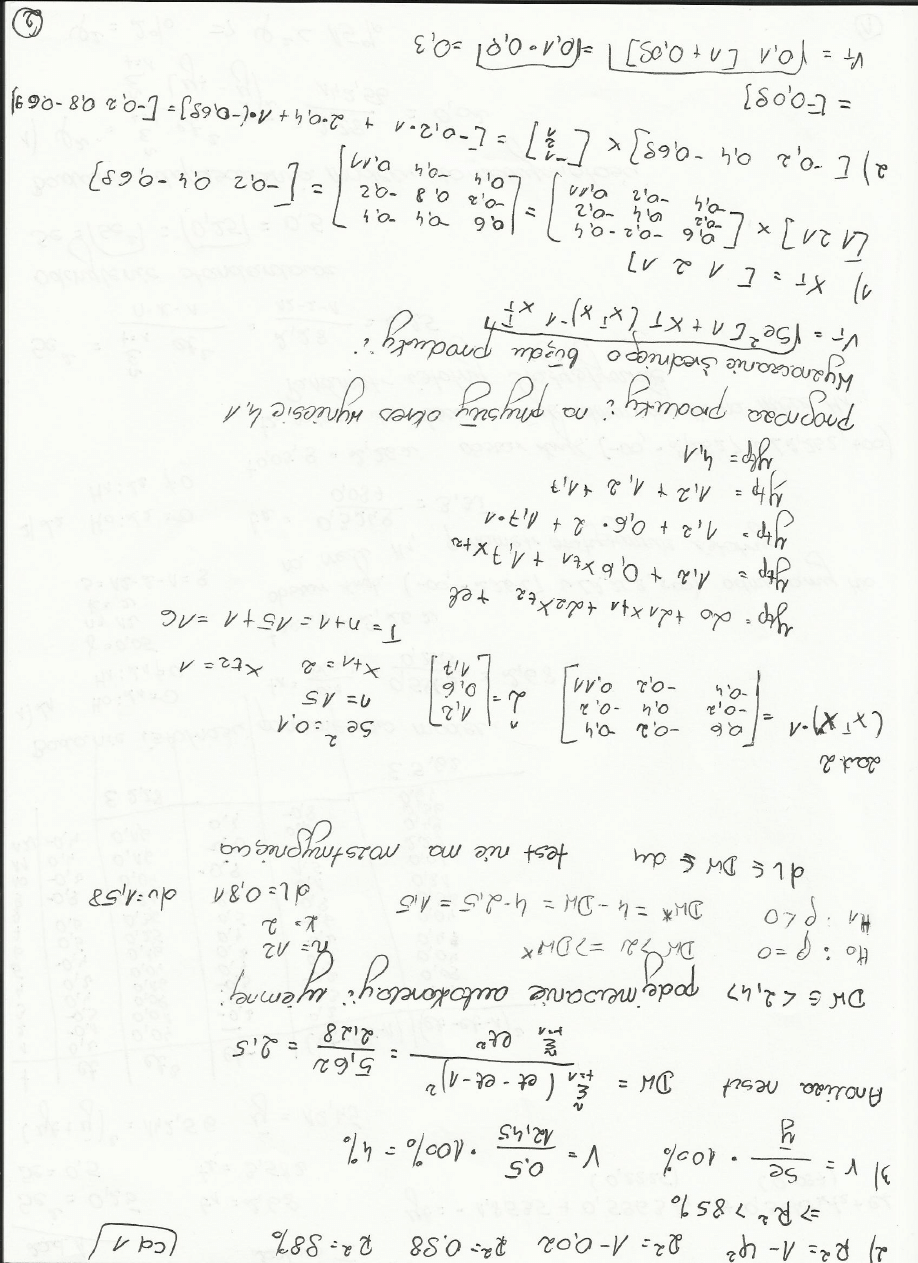 2) R² = 1 - φ² R² = 1 - 0,02 R² = 0,98 R² = 98% cd 1
=> R² > 85%
3) V = Se / ȳ · 100% V = 0,5 / 12,45 · 100% = 4%
Analiza reszt DW = Σ (et - et-1)² / Σ et² = 5,62 / 2,28 = 2,5
n t=1 n t=1
podejrzewanie autokorelacji ujemnej
H0: ρ = 0 DW > 2 => DW* n = 12
k = 2
H1: ρ < 0 DW* = 4 - DW = 4 - 2,5 = 1,5 dL = 0,81 du = 1,58
dL ≤ DW ≤ du test nie ma rozstrzygnięcia
zad. 2
(XᵀX)-1 = [0,6 -0,2 -0,4
-0,2 0,4 -0,2
-0,4 -0,2 0,11]
α̂ = [1,2
0,6
1,7]
Se² = 0,1
n = 15
xt1 = 2 xt2 = 1
T = n+1 = 15+1 = 16
ytp = α0 + α1xt1 + α2xt2 + et
ytp = 1,2 + 0,6xt1 + 1,7xt2
ytp = 1,2 + 0,6 · 2 + 1,7 · 1
ytp = 1,2 + 1,2 + 1,7
ytp = 4,1
Prognoza produkcji na przyszły okres wyniesie 4,1
Wyznaczanie średniego błędu produkcji
VT = √Se² [1 + XT (XᵀX)-1 XTᵀ]
1) XT = [1 2 1]
[1 2 1] × [0,6 -0,2 -0,4
-0,2 0,4 -0,2
-0,4 -0,2 0,11]
= [0,6 -0,4 -0,4
-0,2 0,8 -0,2
-0,4 -0,4 0,11]
= [-0,2 0,4 -0,69]
2) [-0,2 0,4 -0,69] × [1 2 1] = [-0,2·1 + 2·0,4 + 1·(-0,69)] = [-0,2 0,8 -0,69]
= [-0,09]
VT = √0,1 [1 + 0,09] = √0,1 · 0,9 = 0,3
2